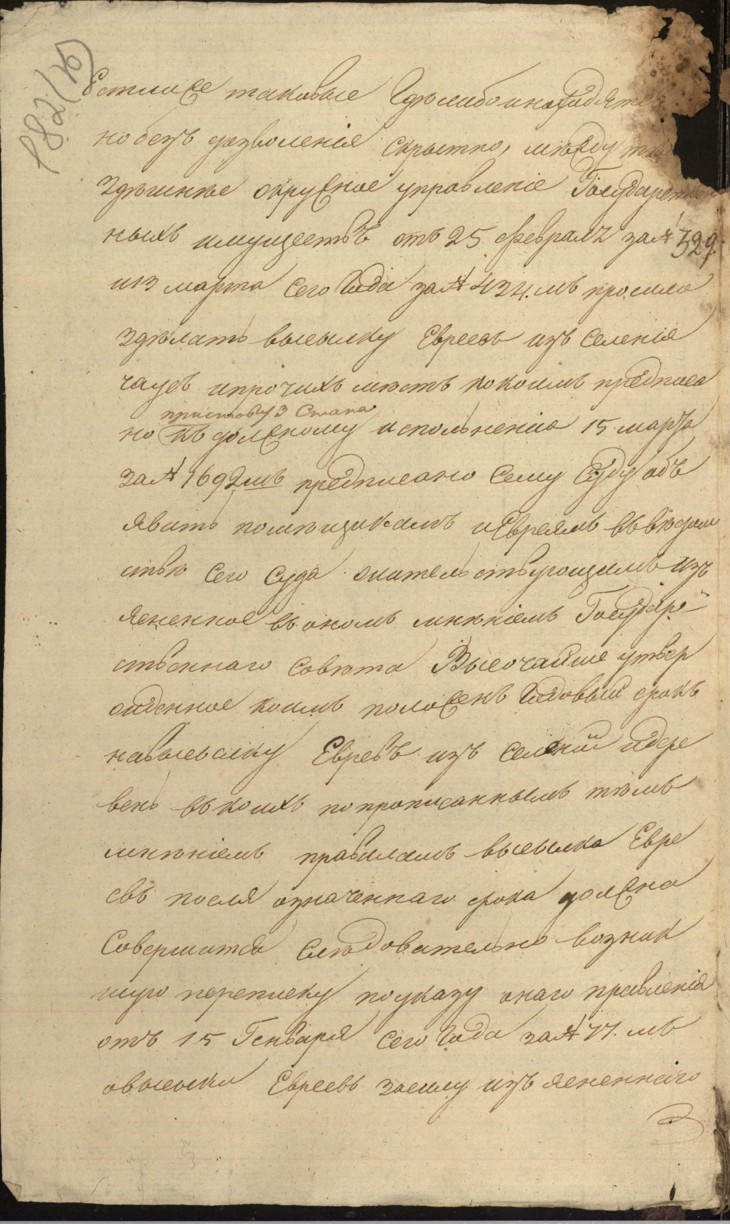 182 (10)
Естлиже таковые Где либо и найдятся
но безъ дозволенія скрытно, между тѣ
Здѣшнее окружное управленіе Государствен
ныхъ имуществъ отъ 25 февраля за № 329.
и 13 марта сего Года за № 434.мъ просило
здѣлать высылку Евреевъ изъ селенія
и прочихъ мѣстъ по коимъ предписа
приставу 3 Стана
но къ должному исполненію 15 марта
за № 1692мъ предписано сему Суду объ
явить помѣщикамъ и Евреямъ въ вѣдом
ствѣ сего Суда жительствующимъ изъ
ясненное въ ономъ мнѣніемъ Государ-
ственнаго совѣта Высочайше утвер
жденное коимъ положенъ Годовый срокъ
на высылку Евреевъ изъ селеній и дере
вень въ коихъ по прописаннымъ тѣмъ
мнѣніемъ правиламъ высылка Евре
евъ после означеннаго срока должна
Совершится Слѣдовательно возник
шую переписку по указу онаго правленія
отъ 15 Генваря сего Года за № 77.мъ
о высылки Евреевъ за силу изъясненнаго